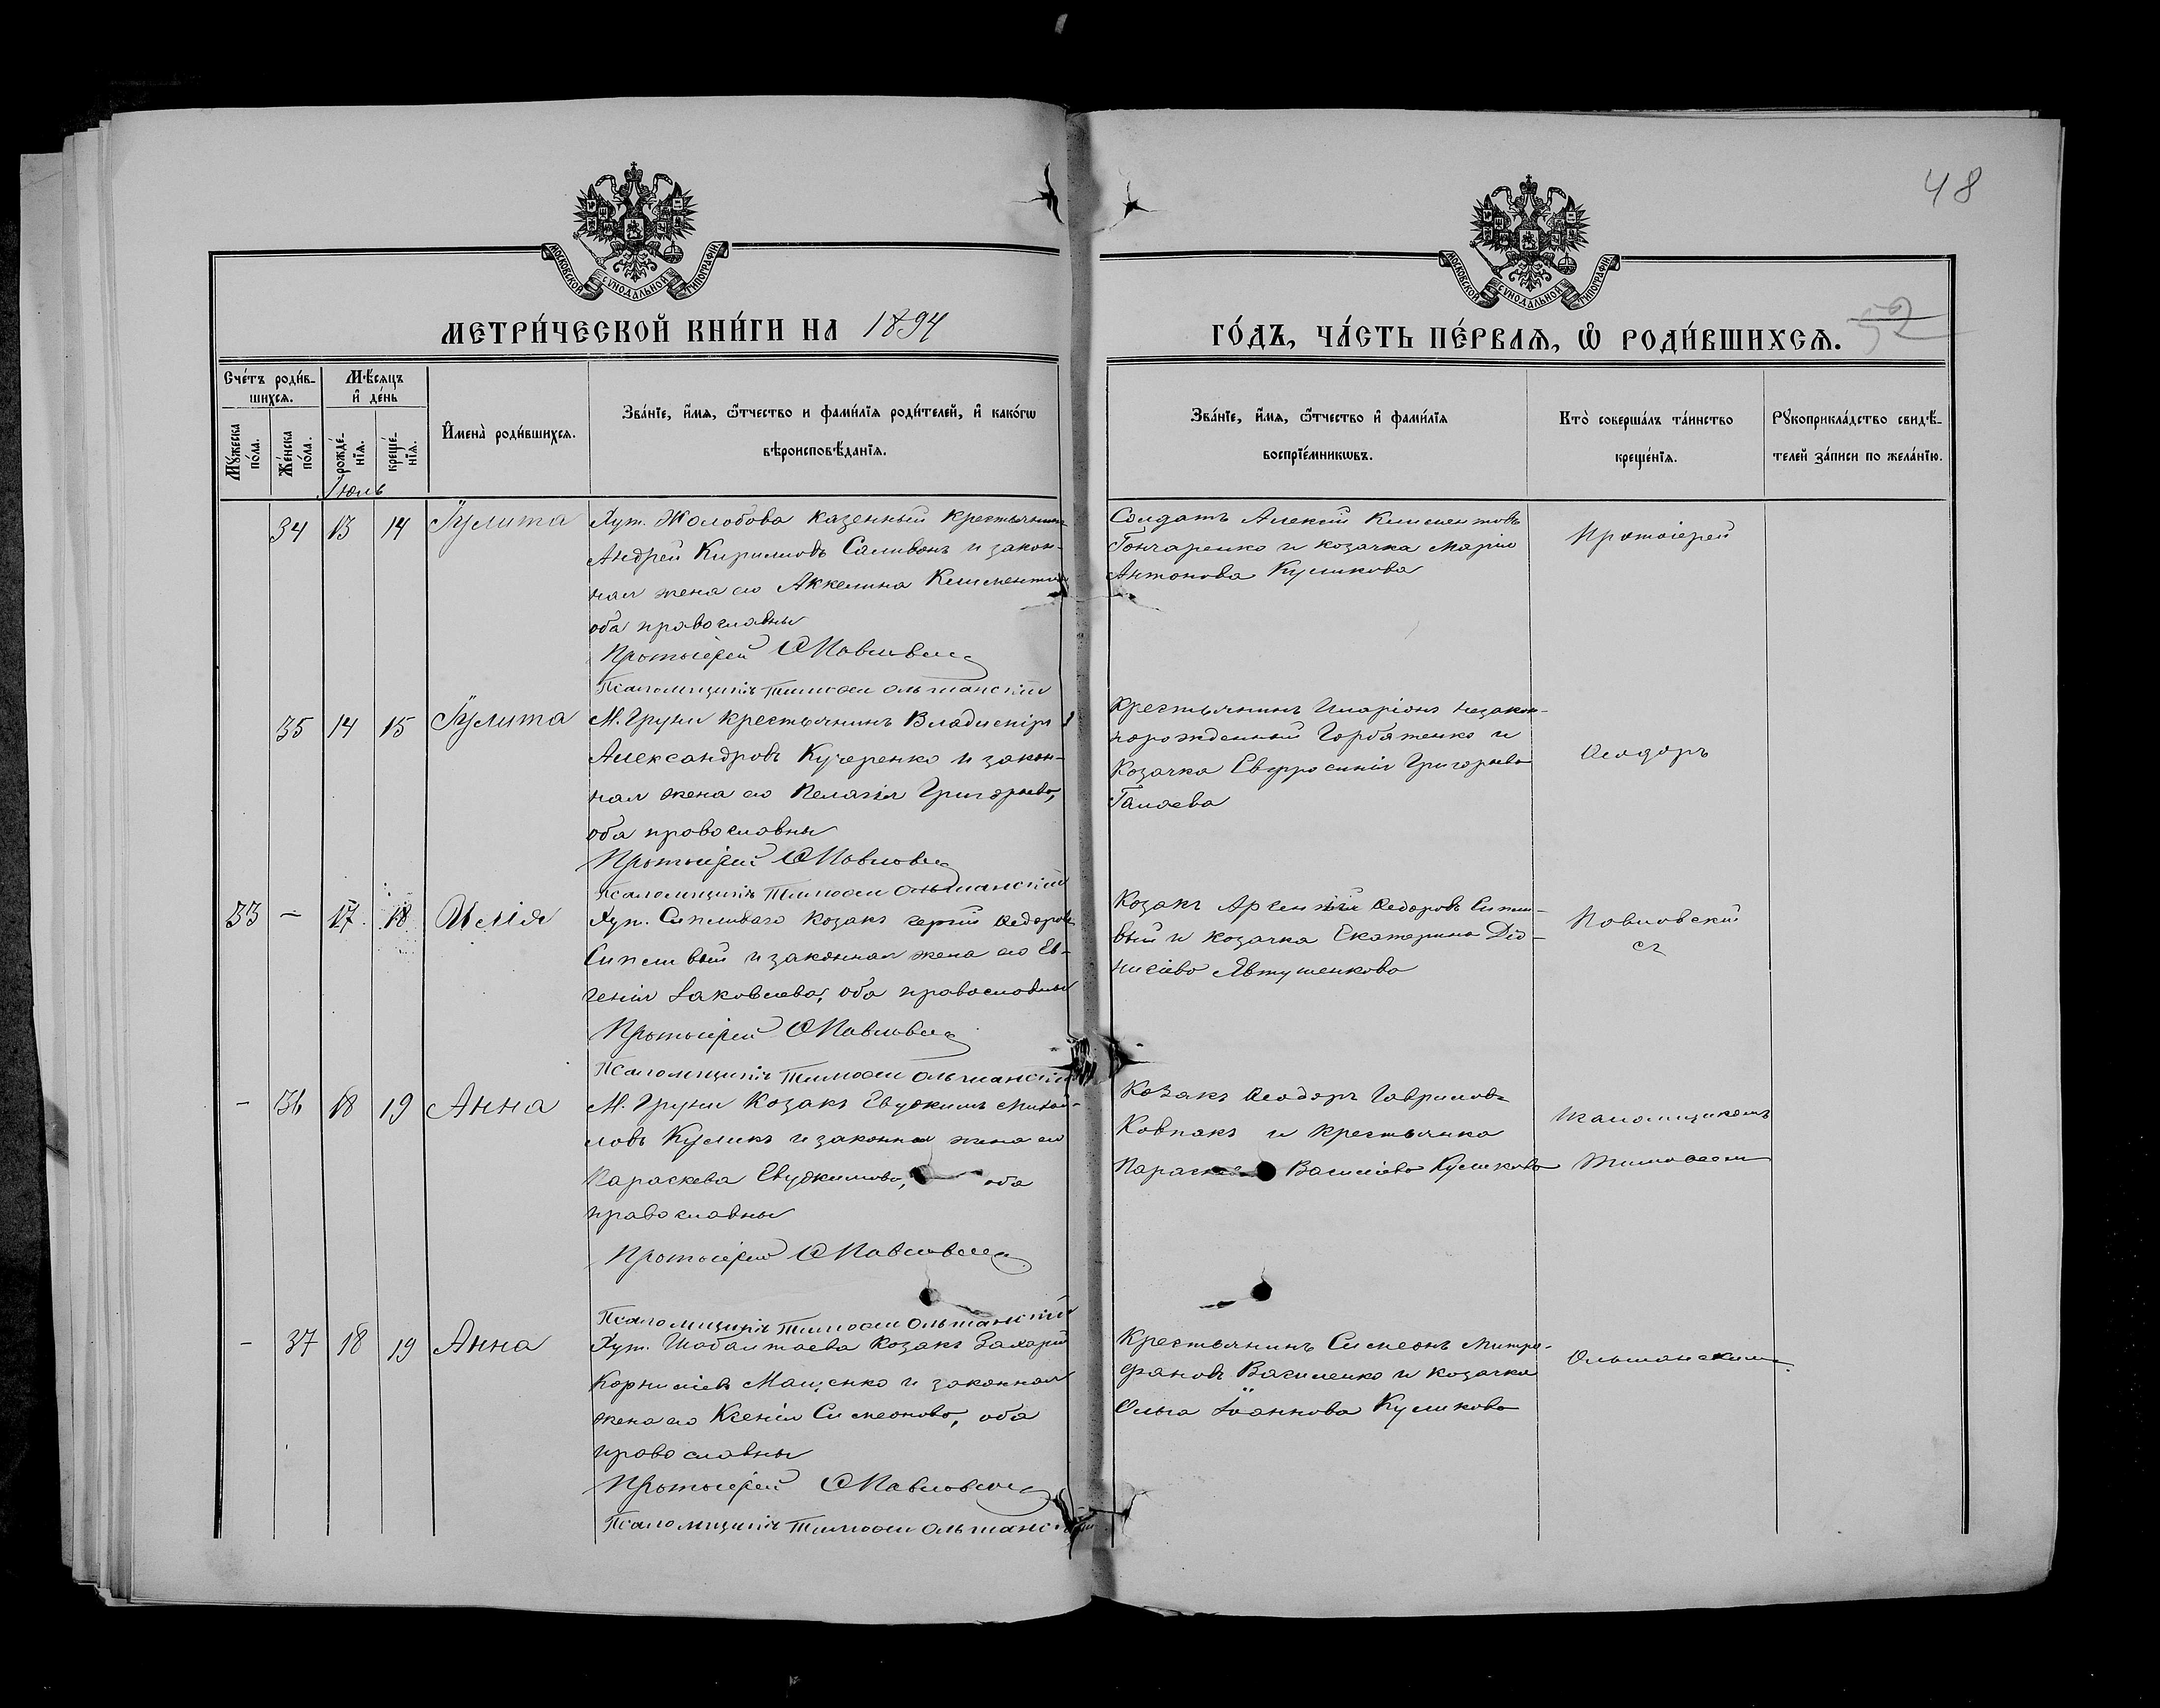 48
МОСКОВСКОЙ СѴНОДАЛЬНОЙ ТИПОГРАФІИ
МОСКОВСКОЙ СѴНОДАЛЬНОЙ ТИПОГРАФІИ
МЕТРИ́ЧЕСКОЙ КНИ́ГИ НА 1894
ГО́ДЪ, ЧА́СТЬ ПЕ́РВАѦ, Ѡ҆ РОДИ́ВШИХСѦ.
52
Сче́тъ роди́в-
шихсѧ.
Мѣ́сѧцъ
и҆ де́нь
Мꙋ́жеска
по́ла.
Же́нска
по́ла.
рожде́-
нїѧ.
креще́-
нїѧ.
И҆мена̀ роди́вшихсѧ.
Зва́нїе, и҆́мѧ, ѻ҆́тчество и фами́лїѧ роди́телей, и҆ како́гѡ
вѣроисповѣ́данїѧ.
Зва́нїе, и҆́мѧ, ѻ҆́тчество и҆ фами́лїѧ
воспрїе́мникѡвъ.
Кто̀ соверша́лъ та́инство
креще́нїѧ.
Рꙋкоприкла́дство свидѣ́-
телей за́писи по жела́нїю.
Іюль
34 13 14 Іулита
Хут. Жолобова казенный крестьянинъ
Андрей Кириловъ Саливонъ и закон-
ная жена его Аккелина Климентова
оба православны
Протоіерей Ѳ Павловскій
Псаломщикъ Тимоѳей Ольшанскій
Солдатъ Алексій Климентовъ
Гончаренко и козачка Марія
Антонова Куликова
Протоіерей
35 14 15 Іулита
М. Груни крестьянинъ Владиміръ
Александровъ Кучеренко и закон-
ная жена его Пелагія Григорьева,
оба православны
Протоіерей Ѳ Павловскій
Псаломщикъ Тимоѳей Ольшанскій
Крестьянинъ Иларіонъ незакон-
норожденный Горбатенко и
Козачка Евфросинія Григорьева
Ѳеодоръ
33 - 17 18 Илія
Хут. Сипливаго Козакъ Ѳедоровъ
Сипливый и законная жена его Ев-
генія Іаковлева, оба православны
Протоіерей Ѳ Павловскій
Псаломщикъ Тимоѳей Ольшанскій
Козакъ Арсеній Ѳедоровъ Сипли-
вый и козачка Екатерина Діо-
нисіева Явтушенкова
Павловскій
съ
- 36 18 19 Анна
М. Груни Козакъ Евдокимъ Михаи-
ловъ Куликъ и законная жена его
Параскева Евдокимова, оба
православны
Протоіерей Ѳ Павловскій
Псаломщикъ Тимоѳей Ольшанскій
Козакъ Ѳеодоръ Гавриловъ
Ковпакъ и крестьянка
Васильева Куликова
псаломщикомъ
Тимоѳеем
- 37 18 19 Анна
Хут. Козакъ Захарій
Корнилієвъ Мащенко и законная
жена его Ксенія Симеонова, оба
православны
Протоіерей Ѳ Павловскій
Псаломщикъ Тимоѳей Ольшанскій
Крестьянинъ Симеонъ Митро-
фановъ Василенко и козачка
Ольга Іоаннова Куликова
Ольшанским.